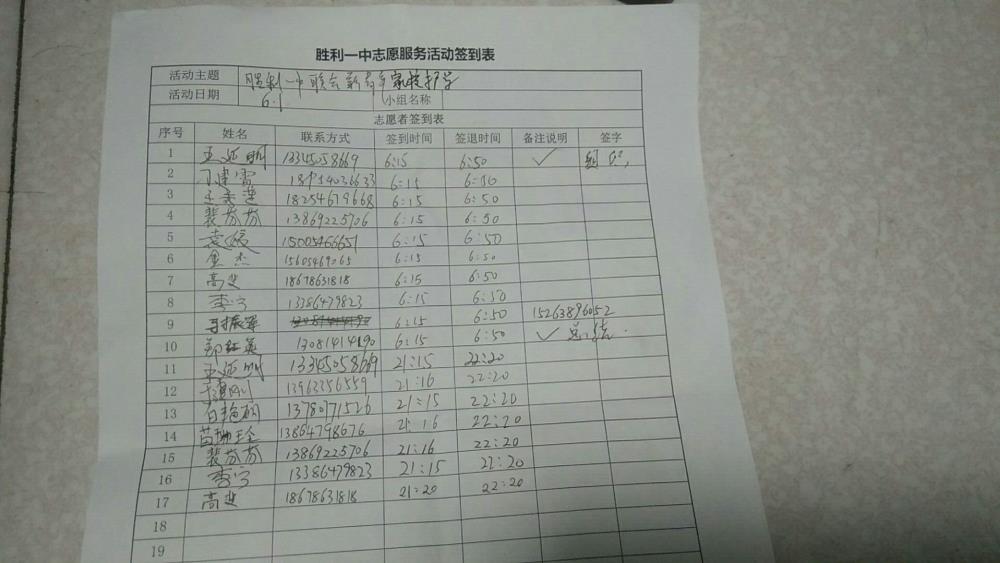 胜利一中志愿服务活动签到表
活动主题 胜利一中联合 家校护学
活动日期 6.1 小组名称
志愿者签到表
序号 姓名 联系方式 签到时间 签退时间 备注说明 签字
1 王延刚 13345058669 6:15 6:50 ✓
2 丁建雷 6:15 6:50
3 18254679668 6:15 6:50
4 裴芬芬 13869225706 6:15 6:50
5 袁媛 15005466651 6:15 6:50
6 金杰 15605469065 6:15 6:50
7 高斐 18678631818 6:15 6:50
8 李宁 13386479823 6:15 6:50
9 马振军 6:15 6:50 15263896052
10 郭红英 13081414190 6:15 6:50 ✓ 总结
11 王延刚 13345058669 21:15 22:20
12 13963356559 21:16 22:20
13 白艳丽 13780771526 21:15 22:20
14 13864798676 21:16 22:20
15 裴芬芬 13869225706 21:16 22:20
16 李宁 13386479823 21:15 22:20
17 高斐 18678631818 21:20 22:20
18
19